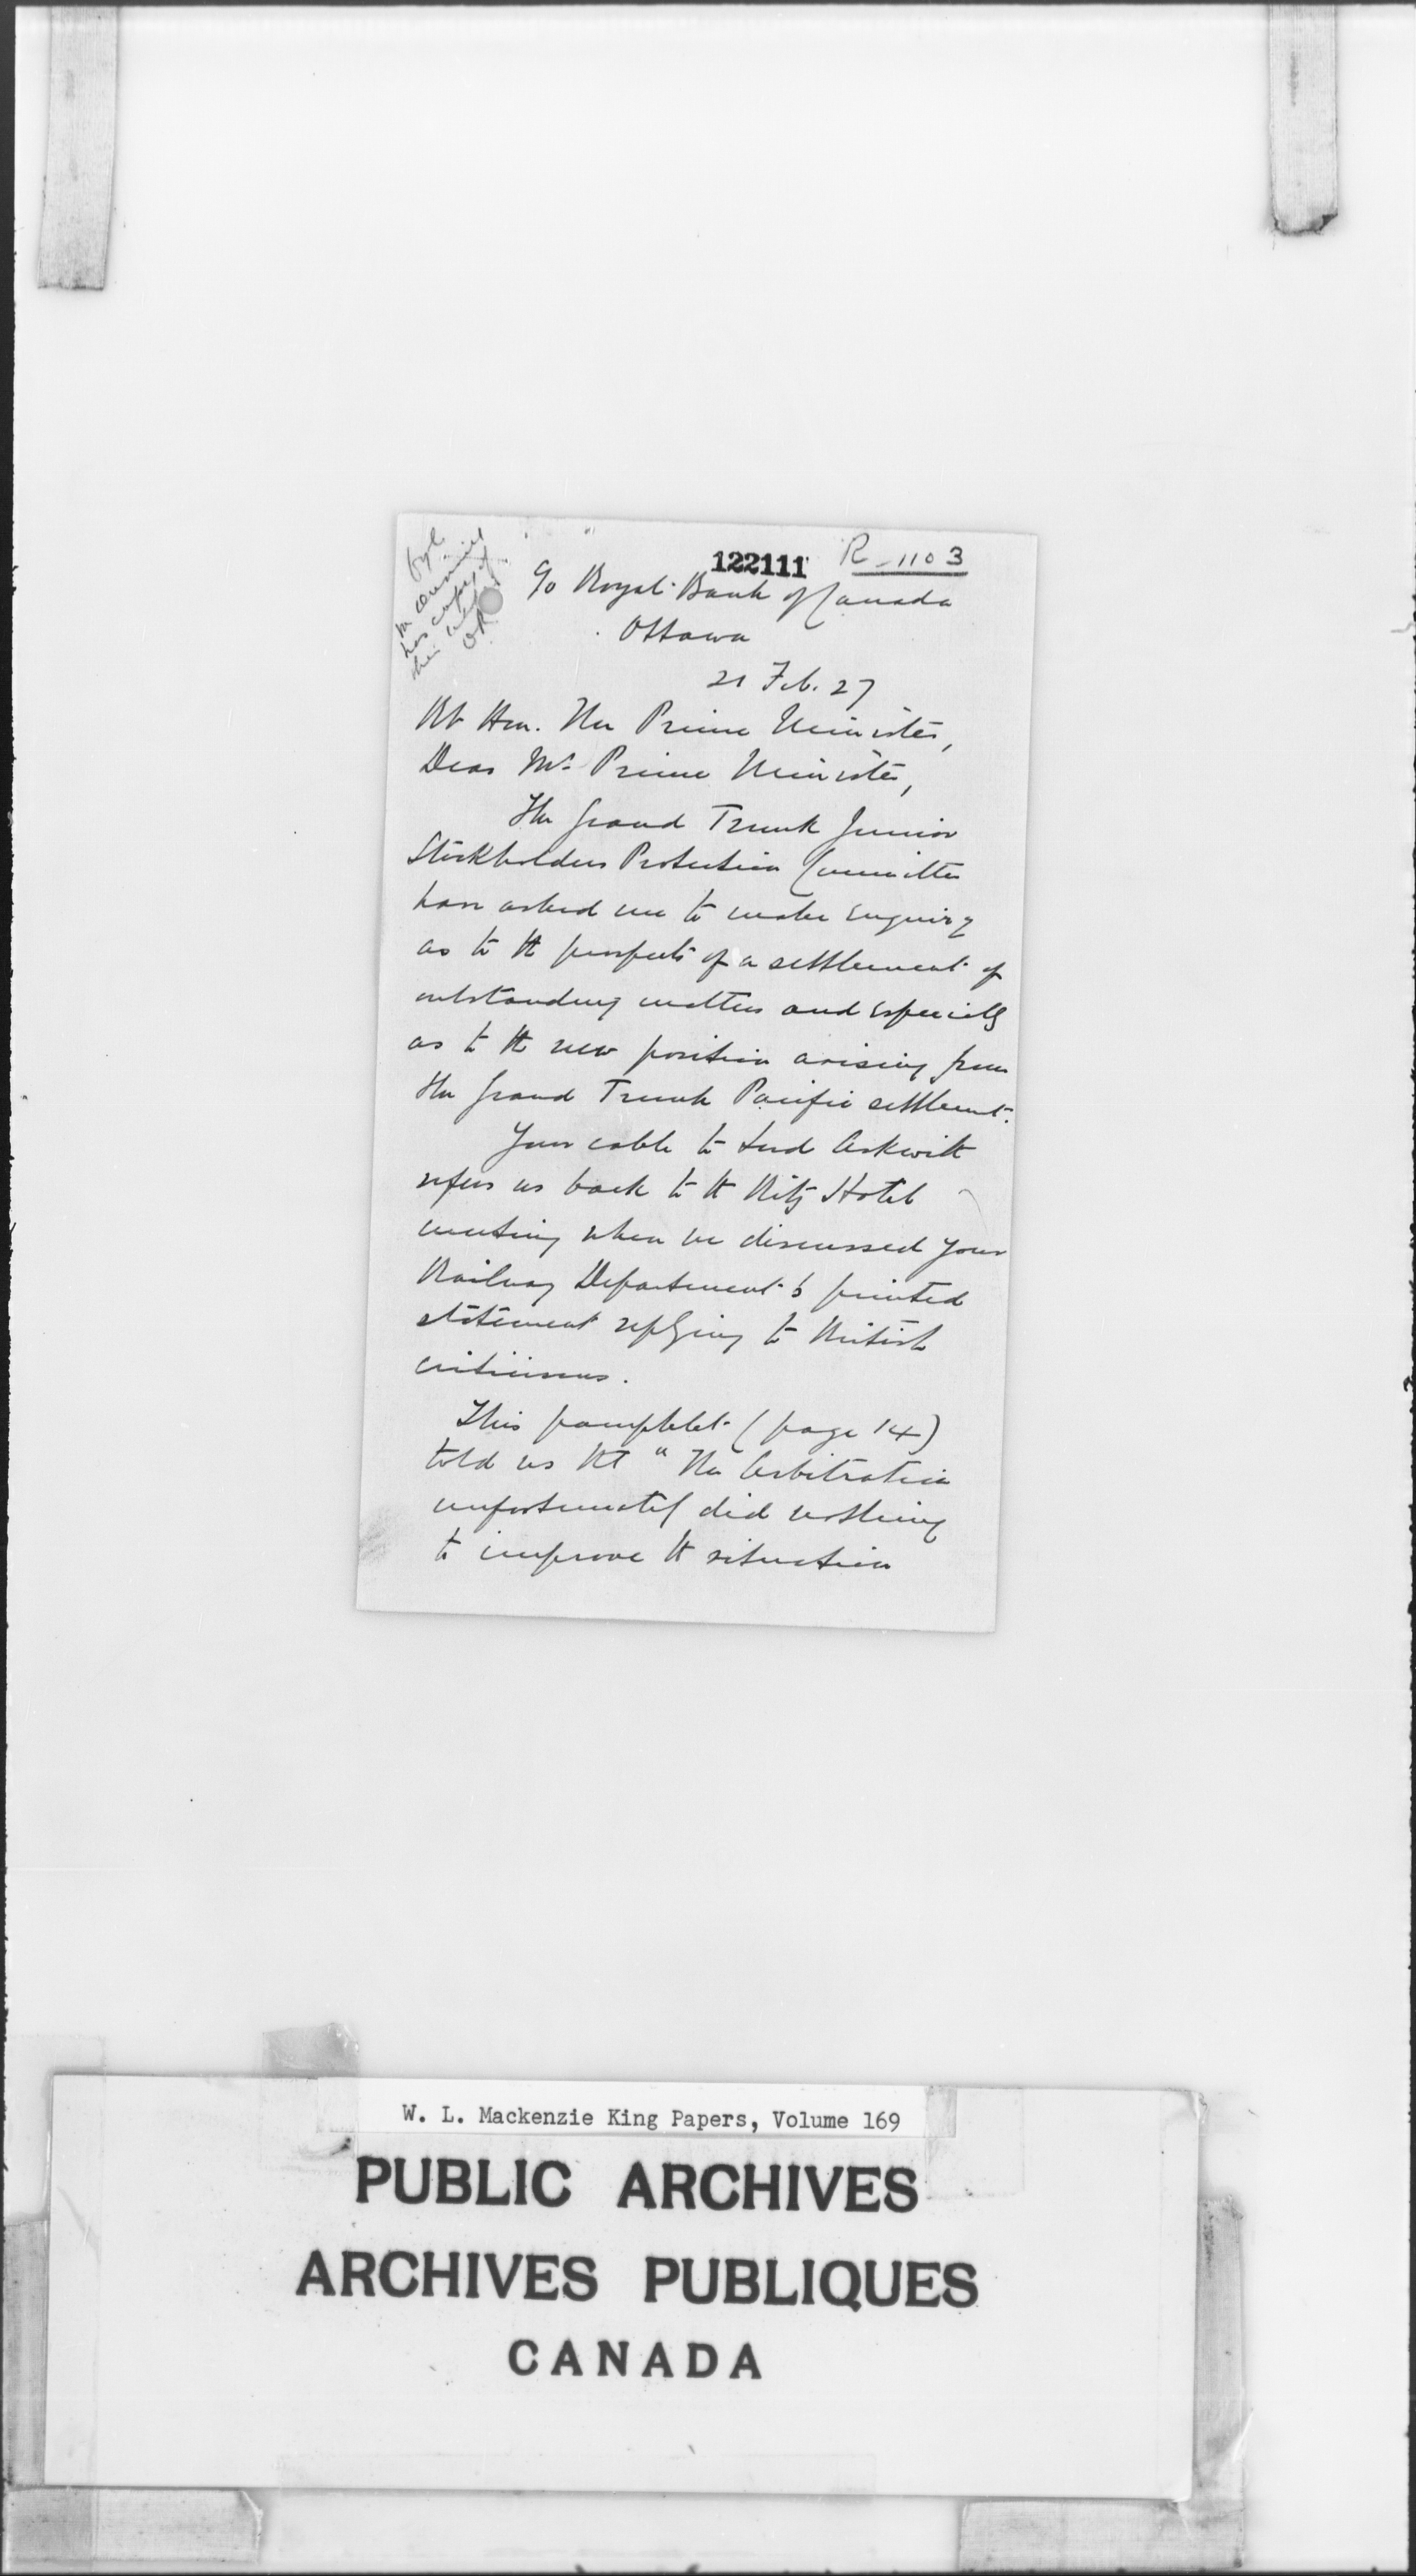 122111 R-1103
c/o Royal Bank of Canada
Ottawa
21 Feb. 27
Rt Hon. The Prime Minister,
Dear Mr Prime Minister,
The Grand Trunk Junior
Stockholders Protection Committee
have asked me to make enquiry
as to the prospects of a settlement of
outstanding matters and especially
as to the new position arising from
the Grand Trunk Pacific settlement.
Your cable to Lord Askwith
refers us back to the Ritz Hotel
meeting when we discussed your
Railway Department's printed
statement replying to British
criticisms.
This pamphlet (page 14)
told us tht "The Arbitration
unfortunately did nothing
to improve the situation
W. L. Mackenzie King Papers, Volume 169
PUBLIC ARCHIVES
ARCHIVES PUBLIQUES
CANADA